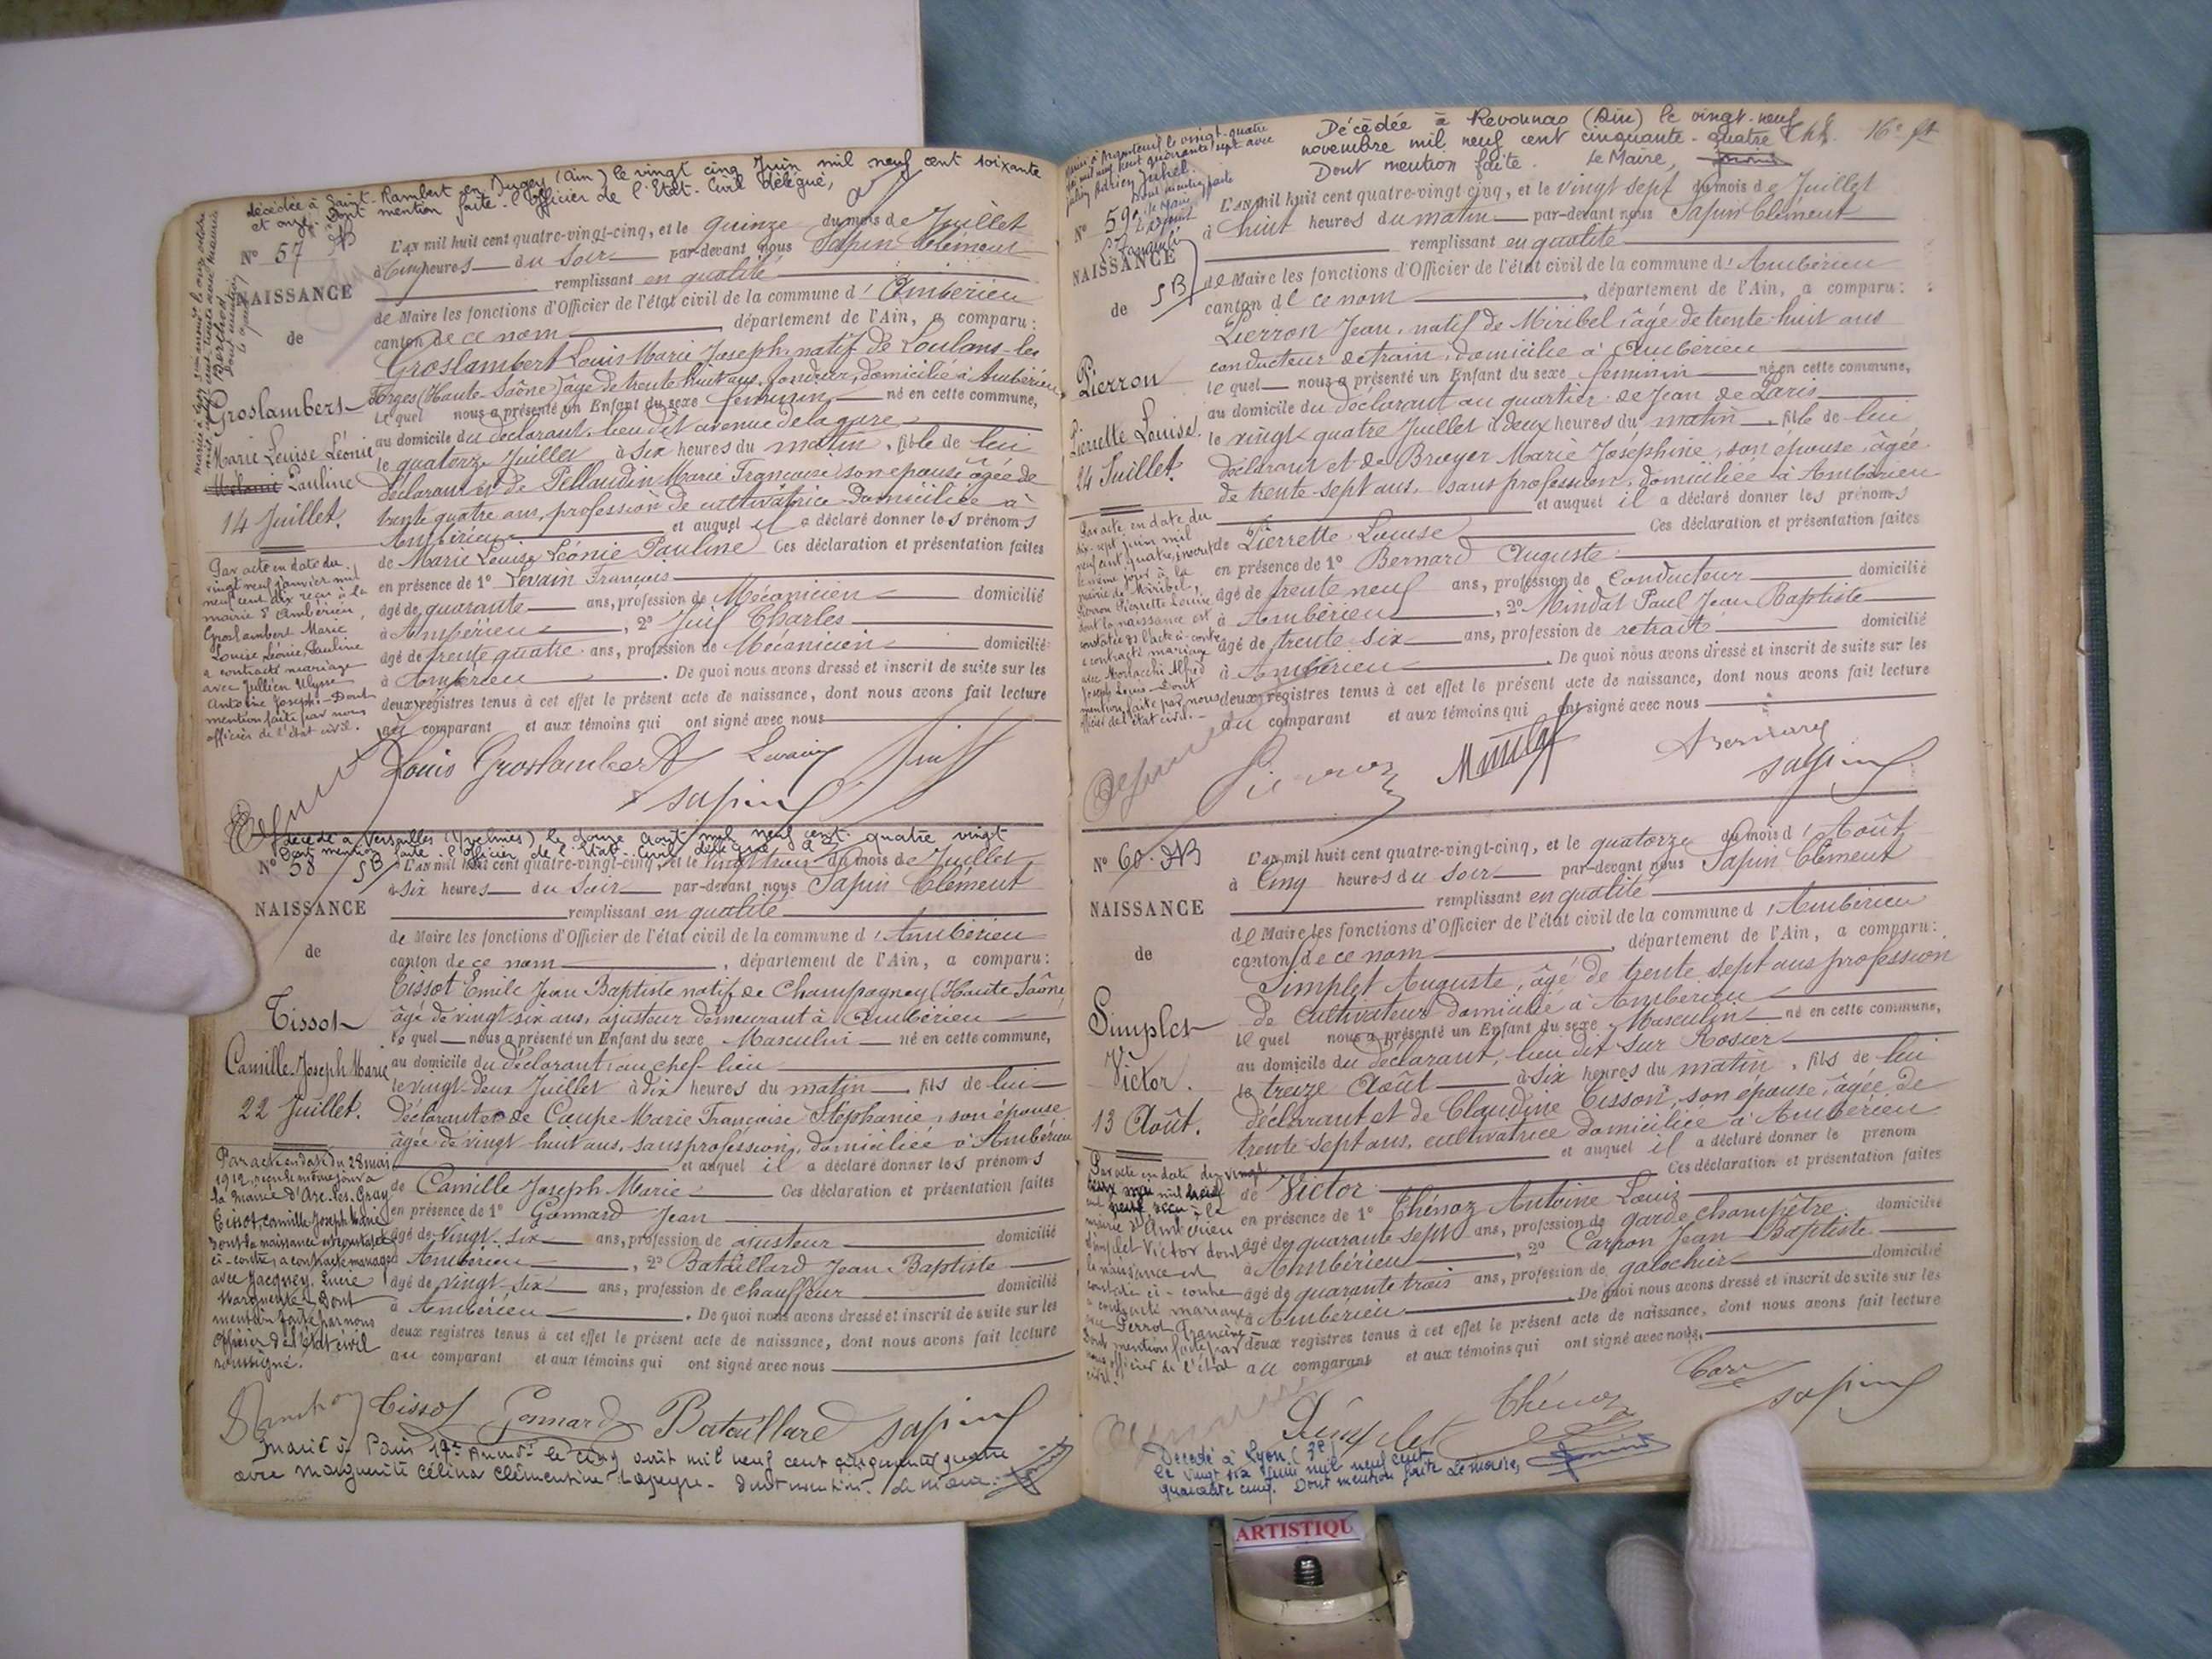 décédée à Saint-Rambert en Bugey (Ain) le vingt cinq Juin mil neuf cent soixante
et onze. Dont mention faite. l'Officier de l'Etat-Civil délégué,
N° 57
NAISSANCE
de
Groslambert
Marie Louise Léonie
Pauline
14 Juillet.
L'AN mil huit cent quatre-vingt-cinq, et le quinze du mois de Juillet
à cinq heures du soir par-devant nous Sapin Clément
remplissant en qualité
de Maire les fonctions d'Officier de l'état civil de la commune d' Ambérieu
canton de ce nom, département de l'Ain, a comparu:
Groslambert Louis Marie Joseph, natif de Loulans-les
Forges (Haute-Saône) âgé de trente huit ans, fondeur, domicilié à Ambérieu
le quel nous a présenté un Enfant du sexe féminin né en cette commune,
au domicile du déclarant, lieu dit avenue de la gare
le quatorze Juillet à six heures du matin, fille de lui
déclarant et de Pellaudin Marie Françoise son épouse âgée de
trente quatre ans, profession de cultivatrice domiciliée à
Ambérieu et auquel il a déclaré donner les prénoms
de Marie Louise Léonie Pauline Ces déclaration et présentation faites
en présence de 1° Levain François
âgé de quarante ans, profession de Mécanicien domicilié
à Ambérieu, 2° Juif Charles
âgé de trente quatre ans, profession de Mécanicien domicilié
à Ambérieu. De quoi nous avons dressé et inscrit de suite sur les
deux registres tenus à cet effet le présent acte de naissance, dont nous avons fait lecture
au comparant et aux témoins qui ont signé avec nous
Par acte en date du
vingt neuf janvier mil
neuf cent dix reçu à la
mairie d'Ambérieu
Groslambert Marie
Louise Léonie Pauline
a contracté mariage
avec Jullien Ulysse
Antoine Joseph. Dont
mention faite par nous
officier de l'état civil.
Louis Groslambert Levain Juif
Sapin
décédé à Versailles (Yvelines) le douze août mil neuf cent quatre vingt
Dont mention faite. l'Officier de l'Etat-Civil délégué
N° 58
NAISSANCE
de
Tissot
Camille Joseph Marie
22 Juillet.
L'AN mil huit cent quatre-vingt-cinq, et le vingt trois du mois de Juillet
à six heures du soir par-devant nous Sapin Clément
remplissant en qualité
de Maire les fonctions d'Officier de l'état civil de la commune d' Ambérieu
canton de ce nom, département de l'Ain, a comparu:
Tissot Emile Jean Baptiste natif de Champagney (Haute Saône)
âgé de vingt six ans, ajusteur demeurant à Ambérieu
le quel nous a présenté un Enfant du sexe Masculin né en cette commune,
au domicile du déclarant, au chef-lieu
le vingt-deux Juillet à dix heures du matin, fils de lui
déclarant et de Caupe Marie Françoise Stéphanie, son épouse
âgée de vingt huit ans, sans profession, domiciliée à Ambérieu
et auquel il a déclaré donner les prénoms
de Camille Joseph Marie Ces déclaration et présentation faites
en présence de 1° Gonnard Jean
âgé de vingt-six ans, profession de ajusteur domicilié
à Ambérieu, 2° Bataillard Jean-Baptiste
âgé de vingt six ans, profession de chauffeur domicilié
à Ambérieu. De quoi nous avons dressé et inscrit de suite sur les
deux registres tenus à cet effet le présent acte de naissance, dont nous avons fait lecture
au comparant et aux témoins qui ont signé avec nous
Par acte en date du 28 mai
1912, reçu le même jour à
la mairie d'Arc-les-Gray
Tissot, Camille Joseph Marie
dont la naissance est constatée
ci-contre, a contracté mariage
avec Jacquey, Lucie
Marguerite. Dont
mention faite par nous
Officier de l'état civil
soussigné.
Tissot Gonnard Bataillard Sapin
Marié à Paris 19e Arrondt le cinq août mil neuf cent cinquante quatre
avec Marguerite Célina Clémentine Lapeyre. Dont mention. Le Maire.
Décédée à Revonnas (Ain) le vingt-neuf
novembre mil neuf cent cinquante-quatre
Dont mention faite. Le Maire,
16e ft
N° 59
NAISSANCE
de
Pierron
Pierrette Louise
24 Juillet.
L'AN mil huit cent quatre-vingt cinq, et le vingt sept du mois de Juillet
à huit heures du matin par-devant nous Sapin Clément
remplissant en qualité
de Maire les fonctions d'Officier de l'état civil de la commune d' Ambérieu
canton de ce nom, département de l'Ain, a comparu:
Pierron Jean, natif de Miribel, âgé de trente-huit ans
conducteur de train, domicilié à Ambérieu
le quel nous a présenté un Enfant du sexe féminin né en cette commune,
au domicile du déclarant au quartier de Jean de Paris
le vingt-quatre Juillet à deux heures du matin, fille de lui
déclarant et de Broyer Marie Joséphine, son épouse, âgée
de trente-sept ans, sans profession, domiciliée à Ambérieu
et auquel il a déclaré donner les prénoms
de Pierrette Louise Ces déclaration et présentation faites
en présence de 1° Bernard Auguste
âgé de trente neuf ans, profession de Conducteur domicilié
à Ambérieu, 2° Mindat Paul Jean Baptiste
âgé de trente-six ans, profession de retraité domicilié
à Ambérieu. De quoi nous avons dressé et inscrit de suite sur les
deux registres tenus à cet effet le présent acte de naissance, dont nous avons fait lecture
au comparant et aux témoins qui ont signé avec nous
Par acte en date du
dix-sept juin mil
neuf cent quatre, inscrit
le même jour à la
mairie de Miribel,
Pierron Pierrette Louise
dont la naissance est
constatée en l'acte ci-contre
a contracté mariage
avec Montacchi Alfred
Joseph Louis. Dont
mention faite par nous
officier de l'état civil.
Pierron Mindat ABernard
Sapin
N° 60
NAISSANCE
de
Simplet
Victor.
13 Août.
L'AN mil huit cent quatre-vingt-cinq, et le quatorze du mois d' Août
à cinq heures du soir par-devant nous Sapin Clément
remplissant en qualité
de Maire les fonctions d'Officier de l'état civil de la commune d' Ambérieu
canton de ce nom, département de l'Ain, a comparu:
Simplet Auguste, âgé de trente sept ans profession
de cultivateur domicilié à Ambérieu
le quel nous a présenté un Enfant du sexe Masculin né en cette commune,
au domicile du déclarant, lieu dit sur Rosier
le treize Août à six heures du matin, fils de lui
déclarant et de Claudine Tisson, son épouse, âgée de
trente sept ans, cultivatrice domiciliée à Ambérieu
et auquel il a déclaré donner le prénom
de Victor Ces déclaration et présentation faites
en présence de 1° Thénoz Antoine Louis
âgé de quarante sept ans, profession de garde champêtre domicilié
à Ambérieu, 2° Carron Jean-Baptiste
âgé de quarante trois ans, profession de galochier domicilié
à Ambérieu. De quoi nous avons dressé et inscrit de suite sur les
deux registres tenus à cet effet le présent acte de naissance, dont nous avons fait lecture
au comparant et aux témoins qui ont signé avec nous,
Par acte en date du vingt
mairie d'Ambérieu
Simplet Victor dont
la naissance est
constatée ci-contre
a contracté mariage
avec Perrot Francine
Dont mention faite par
nous officier de l'état
civil.
Simplet Thénoz Sapin
Décédé à Lyon (3e)
le vingt six Juin mil neuf cent
quarante cinq. Dont mention faite Le Maire,
ARTISTIQU